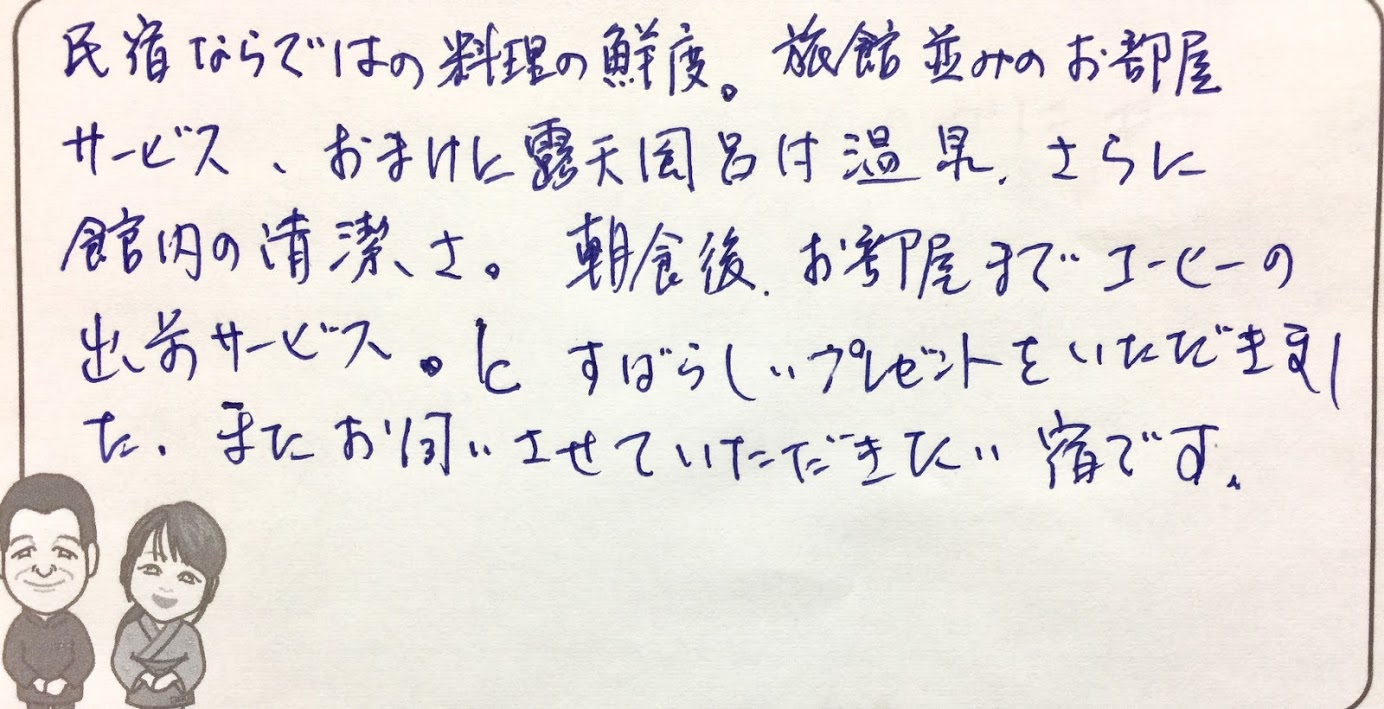 民宿ならではの料理の鮮度。旅館並みのお部屋
サービス、おまけに露天風呂は温泉、さらに
館内の清潔さ。朝食後、お部屋までコーヒーの
出前サービス。と すばらしいプレゼントをいただきまし
た、またお伺いさせていただきたい宿です。